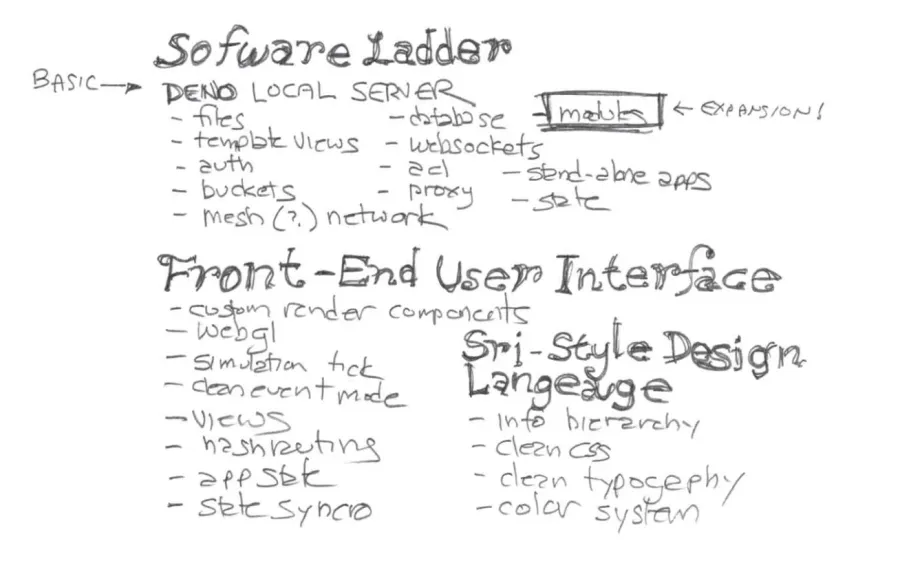 Sofware Ladder
BASIC → DENO LOCAL SERVER
- files - database - modules ← EXPANSION!
- template views - websockets
- auth - acl - stand-alone apps
- buckets - proxy - state
- mesh (?) network
Front-End User Interface
- custom render components
- webgl
- simulation tick
- clean event mode
- views
- hashrouting
- app state
- state syncro
Sri-Style Design
Langeauge
- info hierarchy
- clean css
- clean typogephy
- color system